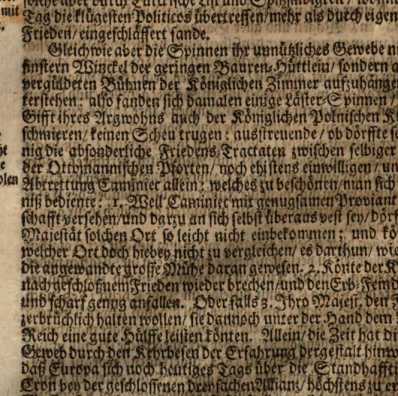 Tag die klügesten Politicos übertreffen/mehr als durch eigen
Frieden/ eingeschläffert fande.
Gleichwie aber die Spinnen ihr unnützliches Gewebe ni
finstern Winckel der geringen Bauren-Hüttlein/ sondern a
vergüldeten Bühnen der Königlichen Zimmer aufzuhänge
kerstehen: also fanden sich damalen einige Läster-Spinnen /
Gifft ihres Argwohns auch der Königlichen Polnischen K
schmieren/ keinen Scheu trugen: ausstreuende/ ob dörffte se
nig die absonderliche Friedens-Tractaten zwischen selbiger
der Ottomannischen Pforten/ noch ehistens einwilligen/ un
Abtrettung Caminiec allein: welches zu beschönen/ man sich
niß bediente: 1. Weil Caminiec mit genugsamen Proviant
schafft versehen/und darzu an sich selbst überaus vest sey/dörf
Majestät solchen Ort so leicht nicht einbekommen; und kö
welcher Ort doch hiebey nicht zu vergleichen/ es darthun/ wie
die angewandte grosse Mühe daran gewesen. 2. Könte der K
nach geschloßnem Frieden wieder brechen/und den Erb-Feind
und scharf genug anfallen. Oder falls 3. Ihro Majest. den F
zerbrüchlich halten wollen/ sie dannoch unter der Hand dem
Reich eine gute Hülffe leisten könten. Allein/ die Zeit hat di
Geweb durch den Kehrbesen der Erfahrung dergestalt hinw
daß Europa sich noch heutiges Tags über die Standhaffti
Cron bey der geschlossenen dreyfachen Allianz/ höchstens zu er